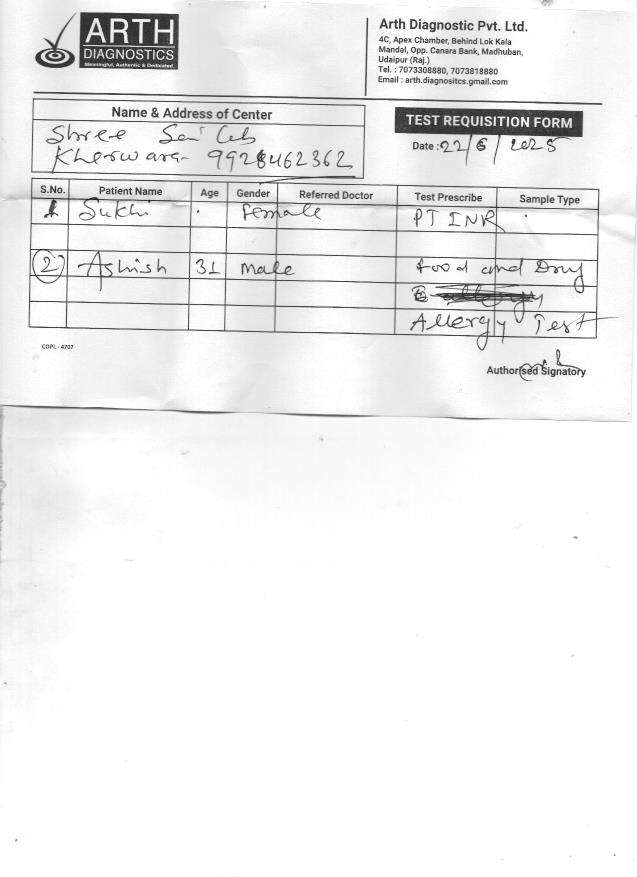 ARTH
DIAGNOSTICS
Meaningful, Authentic & Dedicated
Arth Diagnostic Pvt. Ltd.
4C, Apex Chamber, Behind Lok Kala
Mandal, Opp. Canara Bank, Madhuban,
Udaipur (Raj.)
Tel. : 7073308880, 7073818880
Email : arth.diagnositcs.gmail.com
Name & Address of Center
Shree Sai Lab
Kherwara- 9928462362
TEST REQUISITION FORM
Date : 22/6/2025
S.No. Patient Name Age Gender Referred Doctor Test Prescribe Sample Type
1 Sukhi Female PT INR
2 Ashish 31 Male Food and Drug
Allergy Test
COPL - 4707
Authorised Signatory